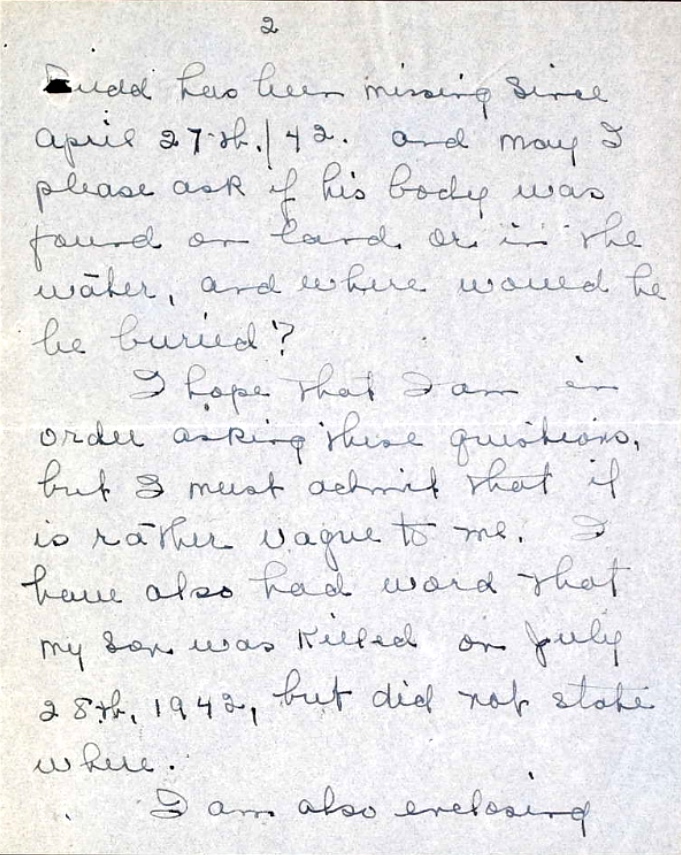 2
Budd has been missing since
April 27th./42. and may I
please ask if his body was
found on land or in the
water, and where would he
be buried?
I hope that I am in
order asking these questions,
but I must admit that it
is rather vague to me. I
have also had word that
my son was killed on July
28th, 1942, but did not state
where.
I am also enclosing